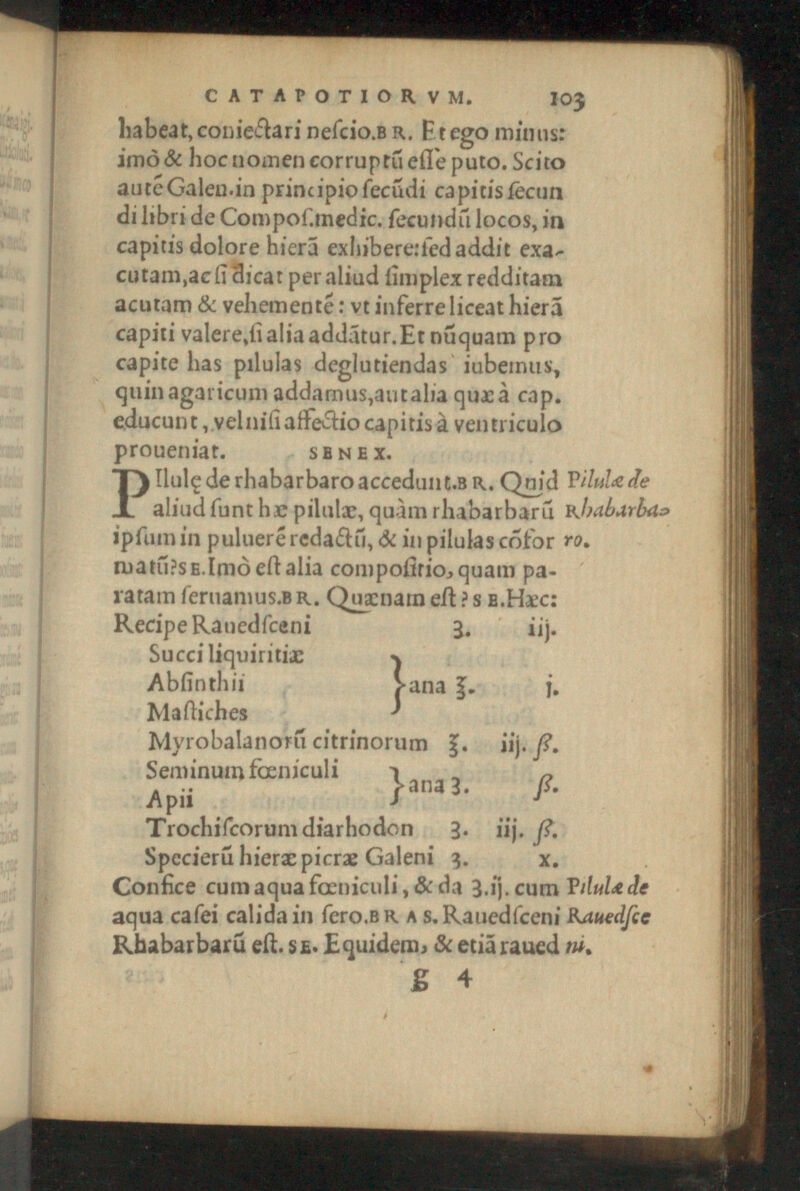 CATAPOTIORVM. 103
habeat, coniectari neſcio.BR. Et ego minus:
imò & hoc nomen corruptū eſſe puto. Scito
autē Galen.in principio ſecūdi capitis ſecun
di libri de Compoſ.medic. ſecundū locos, in
capitis dolore hierā exhibere:ſed addit exa-
cutam,ac ſi dicat per aliud ſimplex redditam
acutam & vehementē: vt inferre liceat hierā
capiti valere,ſi alia addātur.Et nūquam pro
capite has pilulas deglutiendas iubemus,
quin agaricum addamus,aut alia quæ à cap.
educunt, vel niſi affectio capitis à ventriculo
proueniat. SENEX.
PIlulę de rhabarbaro accedunt.BR. Quid Pilulæ de
aliud ſunt hæ pilulæ, quàm rhabarbarū Rhabarba-
ipſum in puluerē redactū, & in pilulas cōfor ro.
matū?SE.Imò eſt alia compoſitio, quam pa-
ratam ſeruamus.BR. Quænam eſt? SE.Hæc:
Recipe Rauedſceni ʒ. iij.
Succi liquiritiæ
Abſinthii } ana ℥. j.
Maſtiches
Myrobalanorū citrinorum ℥. iij. ß.
Seminum fœniculi
Apii } ana ʒ. ß.
Trochiſcorum diarhodon ʒ. iij. ß.
Specierū hieræ picræ Galeni ʒ. x.
Confice cum aqua fœniculi, & da ʒ.ij. cum Pilulæ de
aqua caſei calida in ſero.BRAS. Rauedſceni Rauedſce
Rhabarbarū eſt. SE. Equidem, & etiā raued ni.
g 4